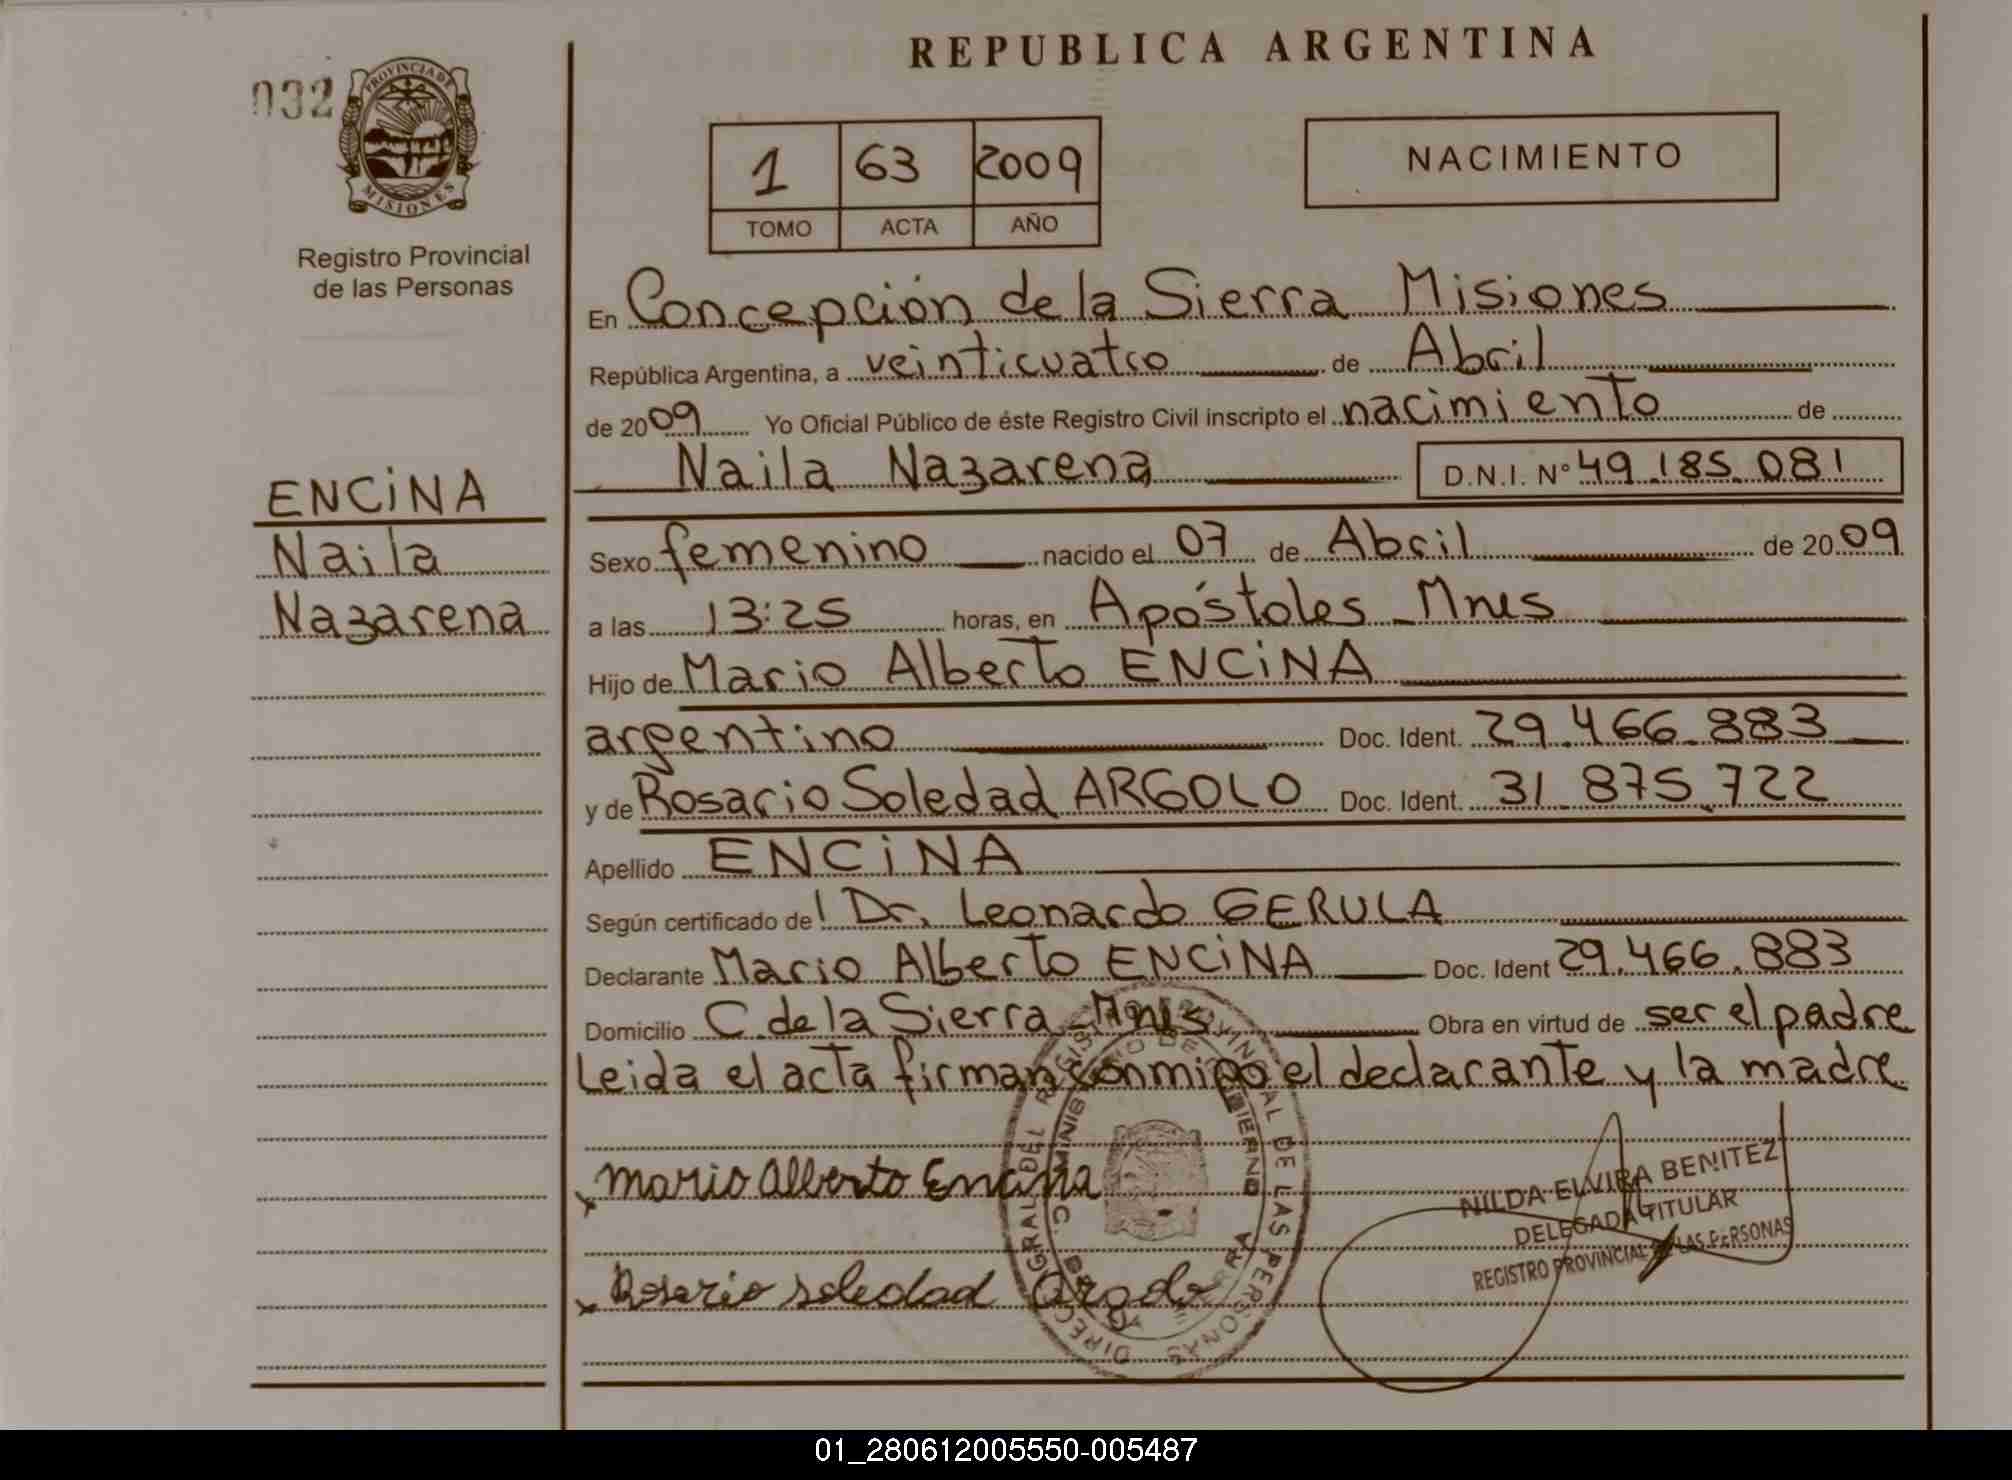 REPUBLICA ARGENTINA
032
PROVINCIA DE
MISIONES
Registro Provincial
de las Personas
1 63 2009
TOMO ACTA AÑO
NACIMIENTO
En Concepción de la Sierra Misiones
República Argentina, a veinticuatro de Abril
de 2009 Yo Oficial Público de éste Registro Civil inscripto el nacimiento de
Naila Nazarena D.N.I. Nº 49.185.081
ENCiNA
Naila
Nazarena
Sexo femenino nacido el 07 de Abril de 2009
a las 13:25 horas, en Apóstoles - Mnes
Hijo de Mario Alberto ENCiNA
argentino Doc. Ident. 29.466.883
y de Rosario Soledad ARGOLO Doc. Ident. 31.875.722
Apellido ENCiNA
Según certificado del Dr. Leonardo GERULA
Declarante Mario Alberto ENCiNA Doc. Ident 29.466.883
Domicilio C. de la Sierra - Mnes Obra en virtud de ser el padre
Leida el acta firman conmigo el declarante y la madre
Mario Alberto Encina
Rosario Soledad Argolo
NILDA ELVIRA BENITEZ
DELEGADA TITULAR
REGISTRO PROVINCIAL DE LAS PERSONAS
DIREC. GRAL DEL REGISTRO PROVINCIAL DE LAS PERSONAS
MINISTERIO DE GOBIERNO
01_280612005550-005487